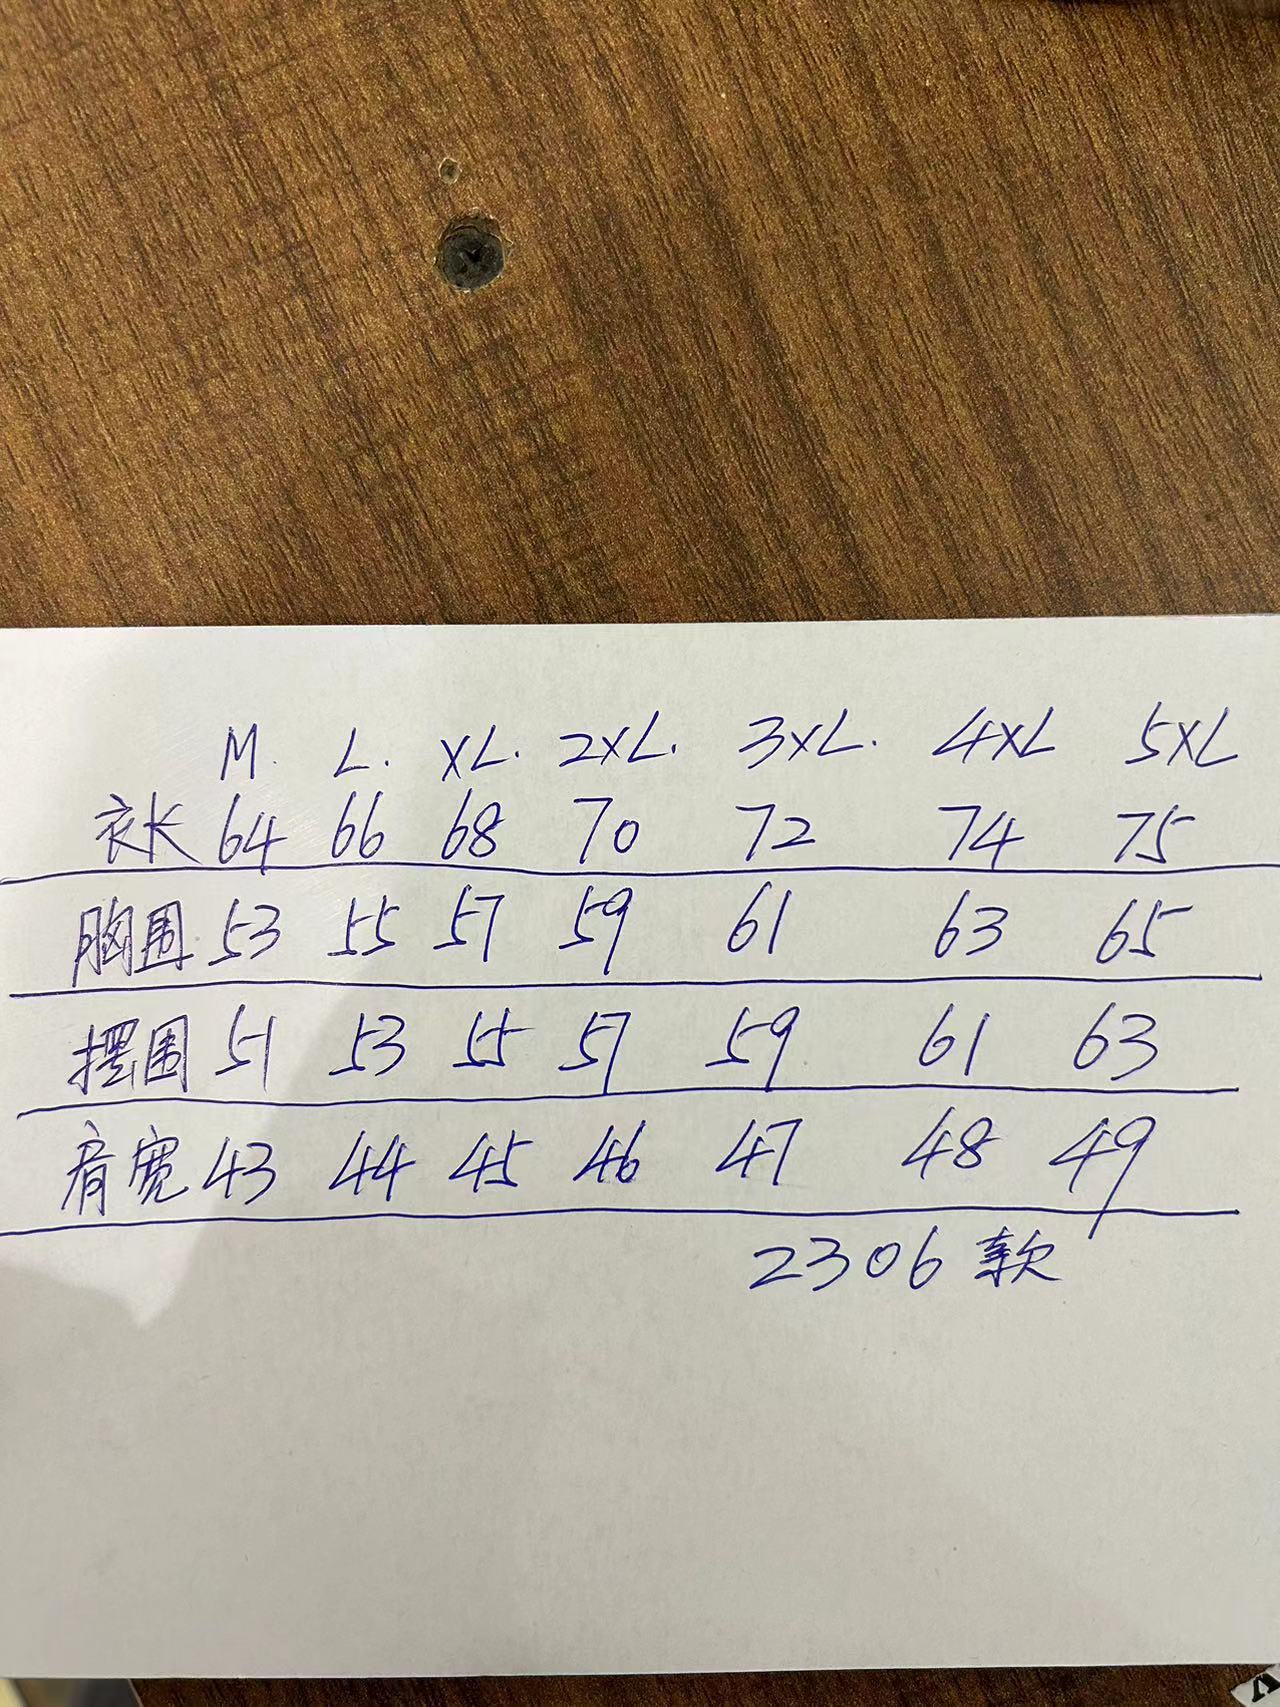 M. L. XL. 2XL. 3XL. 4XL 5XL
衣长 64 66 68 70 72 74 75
胸围 53 55 57 59 61 63 65
摆围 51 53 55 57 59 61 63
肩宽 43 44 45 46 47 48 49
2306 款